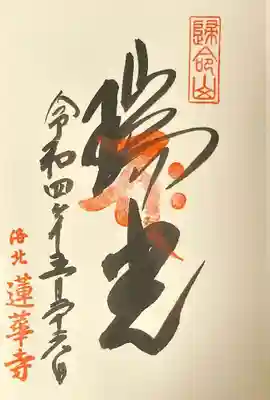 歸命山
瑞光
令和四年五月六日
洛北 蓮華寺